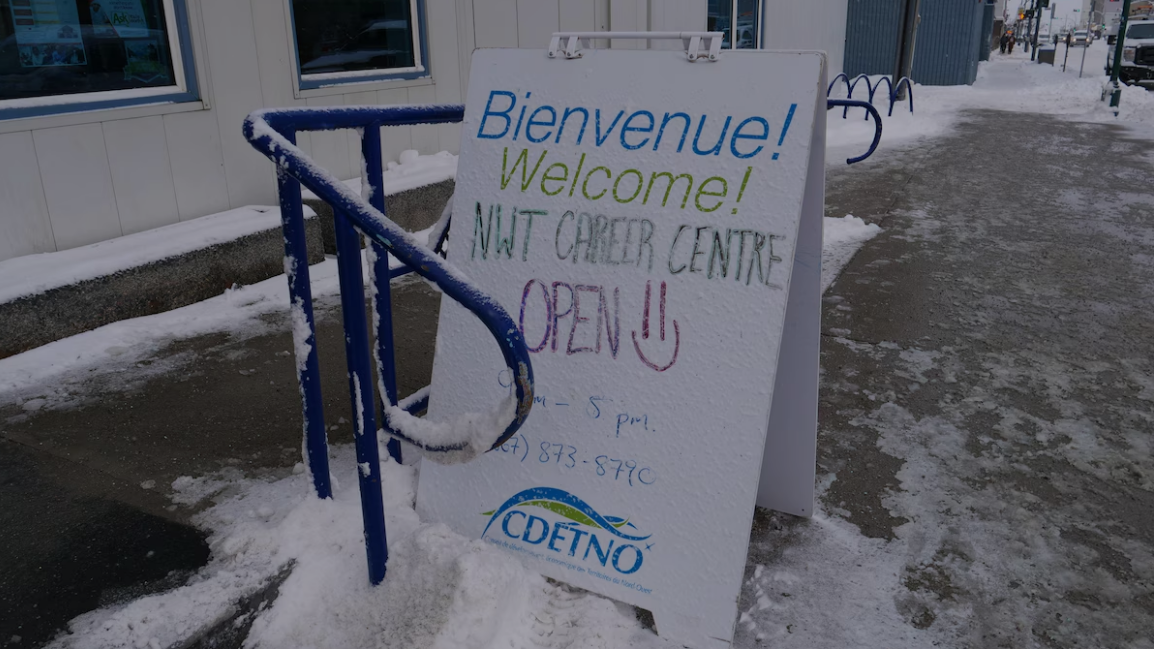 Bienvenue!
Welcome!
NWT CAREER CENTRE
OPEN !!
9 m - 5 pm.
67) 873-8790
CDETNO